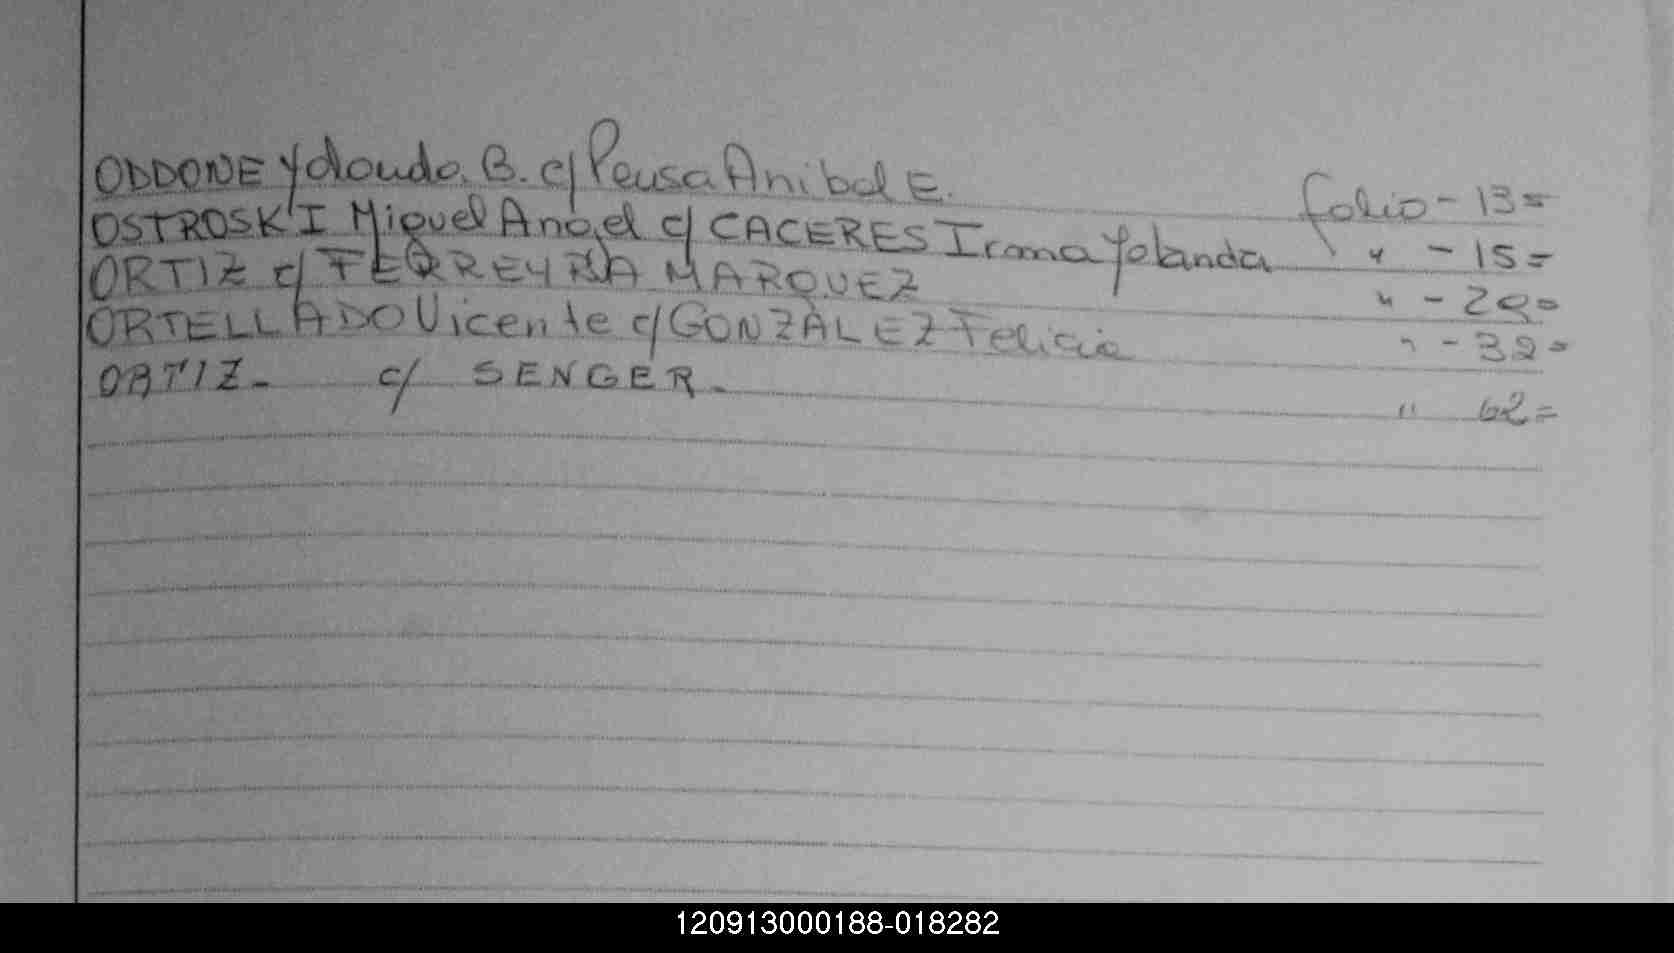 ODDONE Yolanda. B. c/ Peusa Anibal E. folio - 13 =
OSTROSKI Miguel Angel c/ CACERES Irma Yolanda " - 15 =
ORTIZ c/ FERREYRA MARQUEZ " -
ORTELLADO Vicente c/ GONZÁLEZ Felicia " - 32 =
ORTIZ - c/ SENGER - " 62 =
120913000188-018282